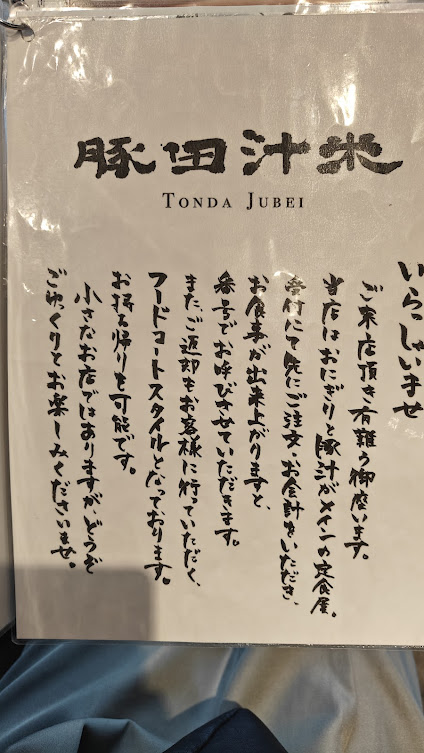 豚田汁米
TONDA JUBEI
いらっしゃいませ
ご来店頂き有難う御座います。
当店はおにぎりと豚汁がメインの定食屋。
受付にて先にご注文・お会計をいただき、
お食事が出来上がりますと、
番号でお呼びさせていただきます。
また、ご返却もお客様に行っていただく、
フードコートスタイルとなっております。
お持ち帰りも可能です。
小さなお店ではありますがどうぞ
ごゆっくりとお楽しみくださいませ。